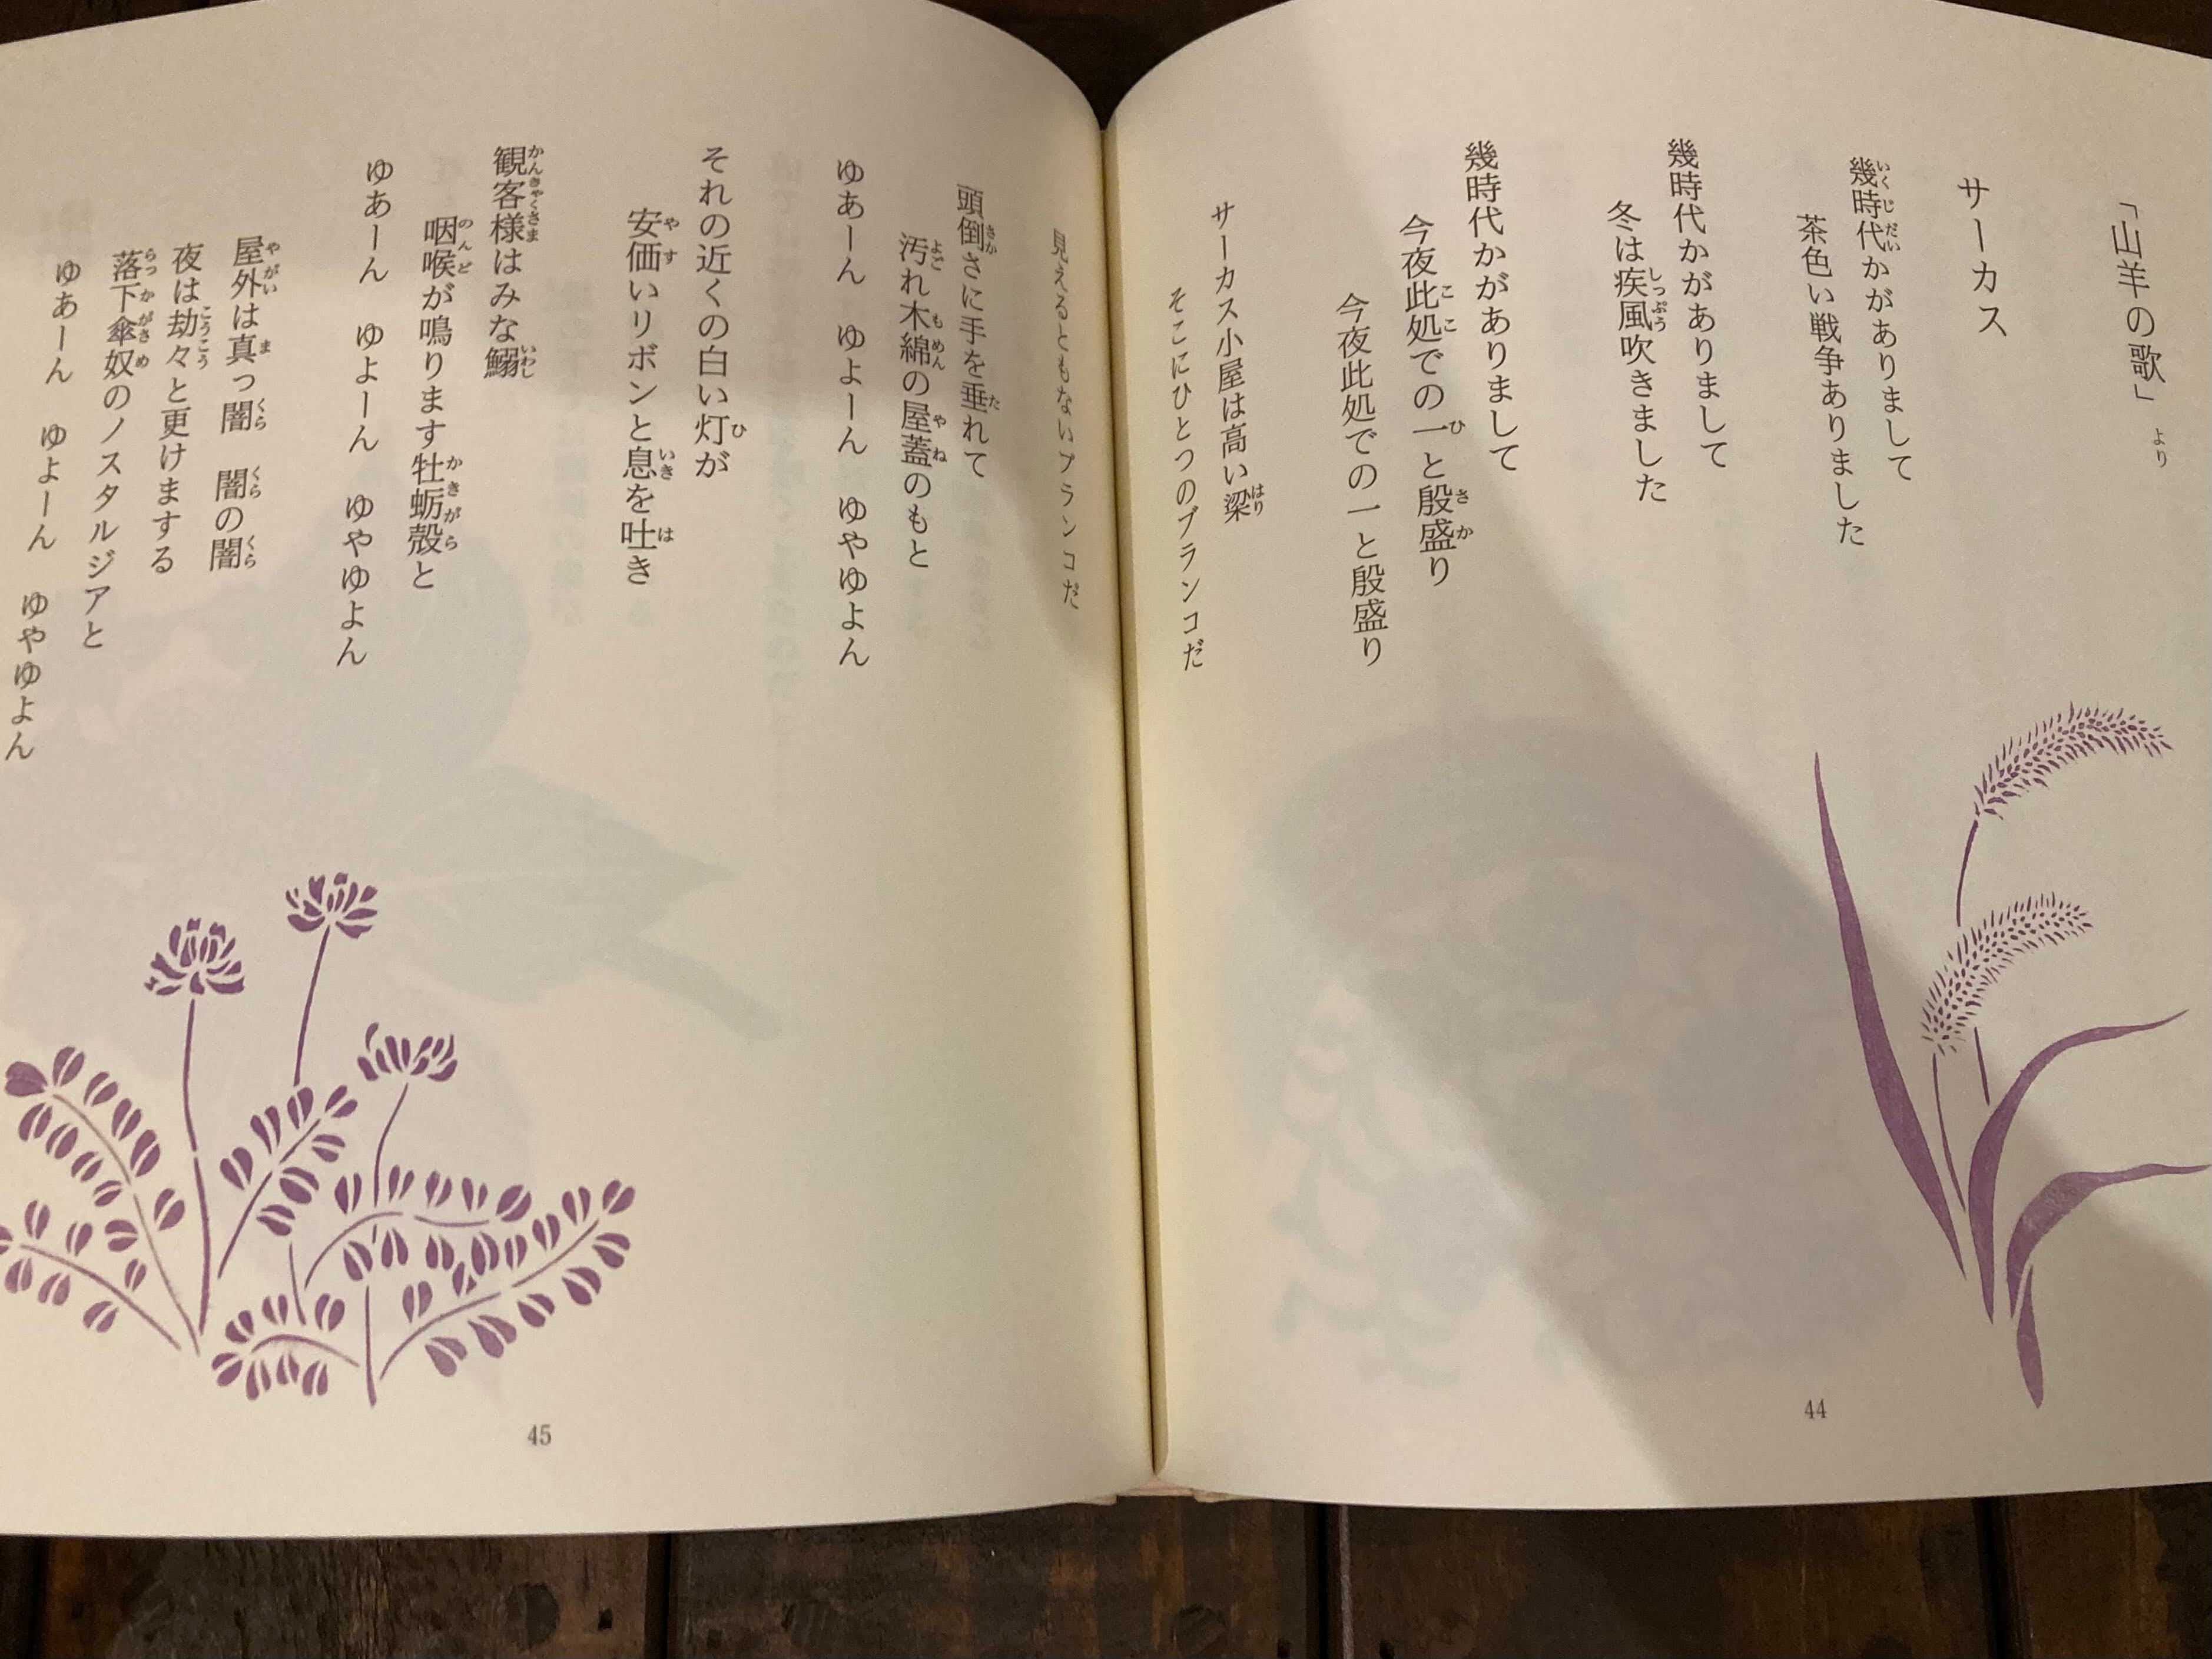 「山羊の歌」より
サーカス
幾時代かがありまして
茶色い戦争ありました
幾時代かがありまして
冬は疾風吹きました
幾時代かがありまして
今夜此処での一と殷盛り
今夜此処での一と殷盛り
サーカス小屋は高い梁
そこにひとつのブランコだ
44
見えるともないブランコだ
頭倒さに手を垂れて
汚れ木綿の屋蓋のもと
ゆあーん　ゆよーん　ゆやゆよん
それの近くの白い灯が
安価いリボンと息を吐き
観客様はみな鰯
咽喉が鳴ります牡蛎殻と
ゆあーん　ゆよーん　ゆやゆよん
屋外は真っ闇　闇の闇
夜は劫々と更けまする
落下傘奴のノスタルジアと
ゆあーん　ゆよーん　ゆやゆよん
45